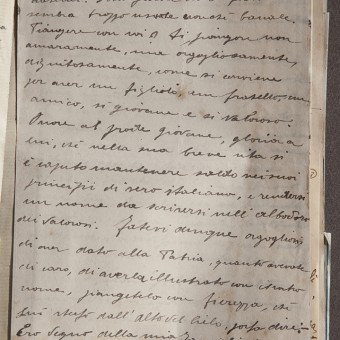 sembra troppo usuale nonché banale.
Piangere con voi? Sì, piangere non
amaramente, ma orgogliosamente,
dignitosamente, come si conviene
per aver un figliolo, un fratello, un
amico, sì giovane e sì valoroso.
Onore al prode giovane, gloria a
lui, che nella sua breve vita si
è saputo mantenere saldo nei suoi
principii di vero italiano, e rendersi
un nome da scriversi nell'albo d'oro
dei valorosi. Fatevi dunque orgogliosi,
di aver dato alla Patria, quanto avevate
di caro, di averla illustrato con
nome, piangetelo con fierezza, chè
lui stesso dall'alto del Cielo, possa dire:
Ero degno della mia